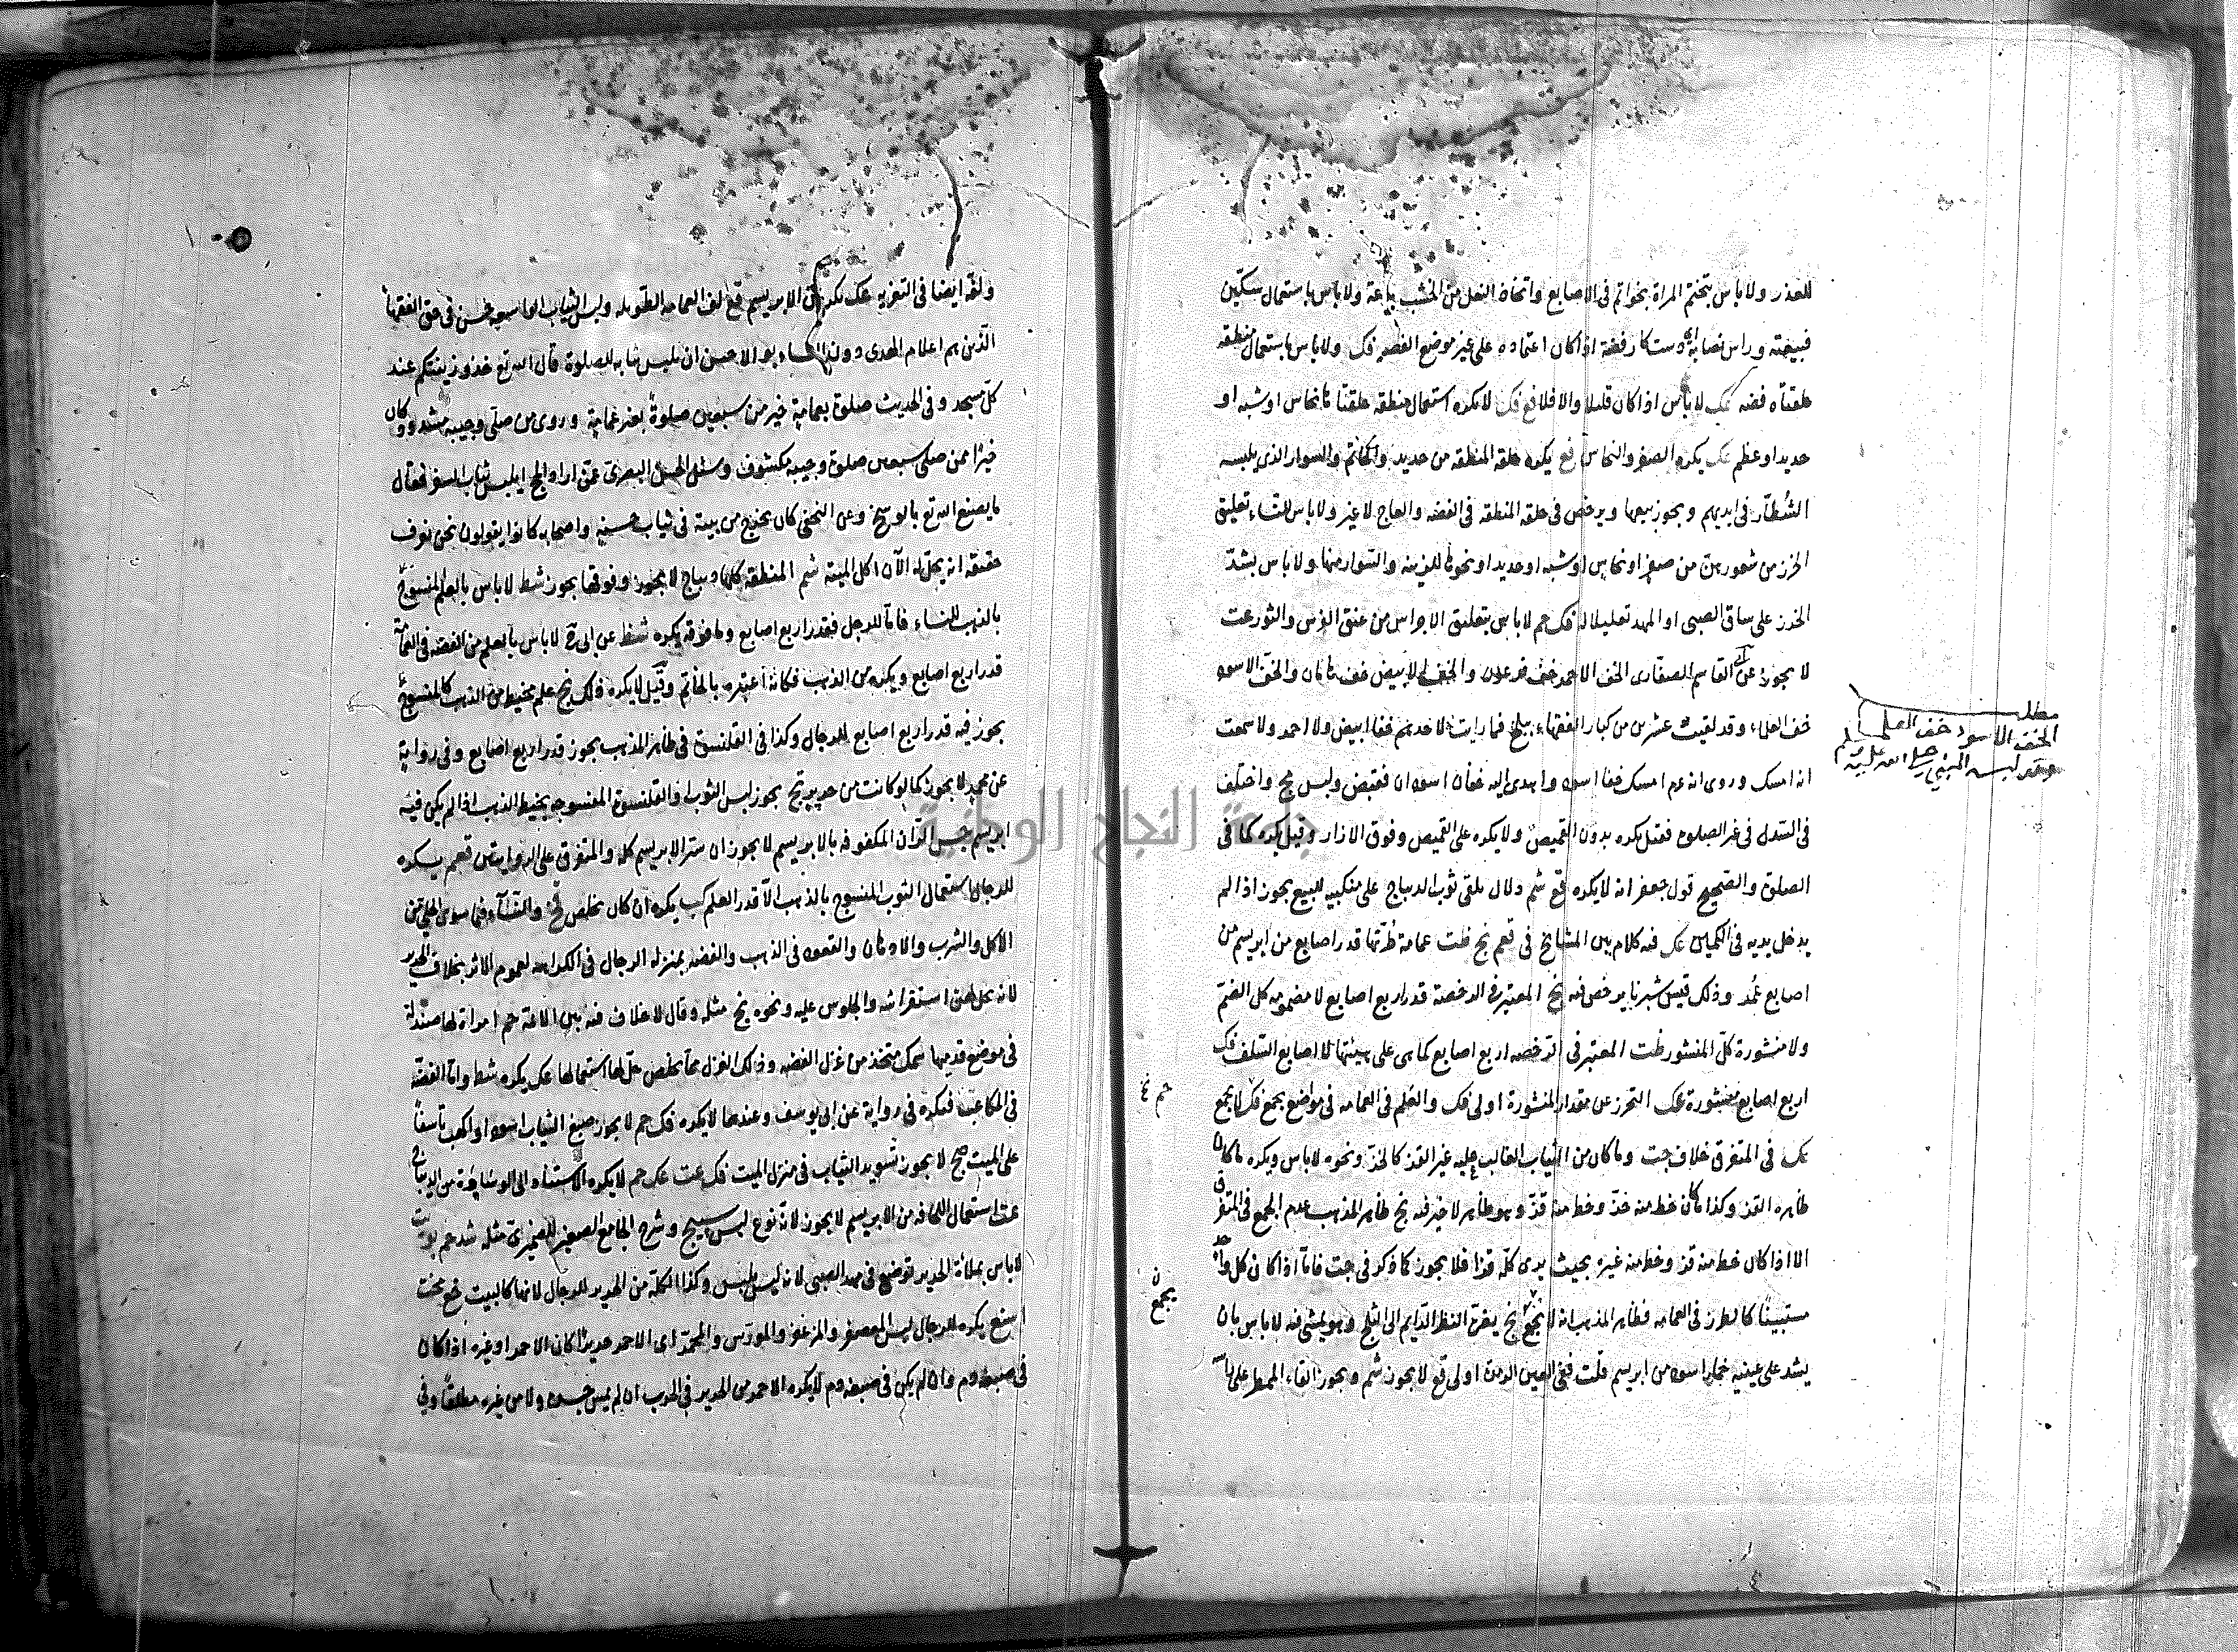 للعذر ولا باس بتختم المراة بخواتم فى الاصابع واتخاذ النعل من الخشب بدعة ولا باس باستعمال سكين
قبيعته وراس نصابه فضة اذا كان اعتماده على غير موضع الفضه فك ولا باس باستعمال منطقه
حلقتاه فضه عك لا باس اذا كان قليلا والا فلا قع فك لا يكره استعمال منطقه حلقتا نحاس او شبه او
حديد او عظم عك يكره الصفر والنحاس قع يكره حلقه المنطقه من حديد والخاتم والسوار الذى يلبسه
الشُطّار فى ايديهم ويجوز بيعها ويرخص فى حلقه المنطقه فى الفضه والعاج لا غير ولا باس للنساء تعليق
الخرز من شعورهن من صفر او نحاس او شبه او حديد او نحوها للزينه والسوار منها ولا باس بشد
الخرز على ساق الصبى او المهد تعليلا له فك حم لا باس بتعليق الاجراس من عنق الفرس والثور عت
لا يجوز عن ابى القاسم الصفارى الخف الاحمر خف فرعون والخف الابيض خف هامان والخف الاسود
خف العلماء وقد لقيت عشرين من كبار الفقهاء ببلخ فما رايت لاحدهم خفا ابيض ولا احمر ولا سمعت
انه امسك وروى انه عم امسك خفا اسود واهدى اليه خفان اسودان فقبض ولبس مح واختلف
فى السدل فى غير الصلوة فقيل يكره بدون القميص ولا يكره على القميص وفوق الازار وقيل يكره كما فى
الصلوة والصحيح قول جعفر انه لا يكره قع شم دلال يلقى ثوب الديباج على منكبيه للبيع يجوز اذا لم
يدخل يديه فى الكمين عك فيه كلام بين المشائخ فى قعم نج ظت عمامة طرتها قدر اصابع من ابريسم من
اصابع عمر وذلك قيس شبرنا يرخص فيه نج المعتبر فى الرخصة قدر اربع اصابع لا مضمومه كل الضم
ولا منشورة كل المنشور ظت المعتبر فى الرخصه اربع اصابع كما هى على هيئتها لا اصابع السلف فك
اربع اصابع منشورة عك التحرز عن مقدار المنشورة اولى فك والعلم فى العمامه فى مواضع يجمع فك لا يجمع
عك فى المتفرق خلاف جت وما كان من الثياب الغالب عليه غير القز كالخز ونحوه لا باس ويكره ما كان
ظاهره القز وكذا ما كان خط منه خز وخط منه قز وهو ظاهر لا خير فيه نج ظاهر المذهب عدم الجمع فى المتفرق
الا اذا كان خط منه قز وخط منه غيره بحيث يرى كله قزا فلا يجوز كما ذكر فى جت فاما اذا كان كل واحد
مستبينا كالطرز فى العمامه فظاهر المذهب انه لا يجمع نج يفرق النظر الدايم الى الثلج وهو يمشى فيه لا باس بان
يشد على عينيه خمارا اسود من ابريسم قلت ففى العين الرمدة اولى قع لا يجوز شم ويجوز القاء الممطر على
مطلب
الخف الاسود خف العلما
وقد لبسه النبى صلى الله عليه وسلم
حم نج
يجمع
ولفه ايضا فى التعزيه عك يكره من الابريسم قع لف العمامه الطويله ولبس الثياب الواسعه حسن فى حق الفقهاء
الذين هم اعلام الهدى دون النساء بو الاحسن ان يلبس ثيابه للصلوة قال الله تع خذوا زينتكم عند
كل مسجد وفى الحديث صلوة بعمامة خير من سبعين صلوة بغير عمامة وروى من صلى وجيبه مشدود كان
خيرا ممن صلى سبعين صلوة وجيبه مكشوف وسئل الحسن البصرى عمن اراد الحج ايلبس ثياب السفر فقال
ما يصنع الله تع بالوسخ وعن النخعى كان يخرج من بيته فى ثياب حسنه واصحابه كانوا يقولون نحن نعرف
حقيقة انه يحل له الآن اكل الميته شم المنطقه كلها ديباج لا يجوز وفوقها يجوز شط لا باس بالعلم المنسوج
بالذهب للنساء فاما للرجل فقدر اربع اصابع وما فوقه يكره شط عن ابى ح لا باس بالعلم من الفضه فى العمامة
قدر اربع اصابع ويكره من الذهب فكانه اعتبره بالخاتم وقيل لا يكره ذلك نج علم مخيط من الذهب كالمنسوج
يجوز فيه قدر اربع اصابع للرجال وكذا فى القلنسوة فى ظاهر المذهب يجوز قدر اربع اصابع وفى رواية
عن محمد لا يجوز كما لو كانت من حرير نج يجوز لبس الثوب والقلنسوة المنسوجه بخيط الذهب اذا لم يكن فيه
ابريسم المكفوفه بالابريسم لا يجوز ان ستر الابريسم كله والمتفرق على الروايتين قعم يكره
للرجال استعمال الثوب المنسوج بالذهب الا قدر العلم يكره ان كان يخلص والنساء فيما سوى الحلى من
الاكل والشرب والادهان والقعود فى الذهب والفضه بمنزله الرجال فى الكراهه لعموم الاثر بخلاف الحرير
لانه يحل لهن استفراشه والجلوس عليه ونحوه نج مثله وقال لا خلاف فيه بين الائمة حم امراة لها صندلة
فى موضع قدميها سمك متخذ من غزل الفضه وذلك الغزل مما يخلص يحل لها استعمالها عك يكره شط واما الفضة
فى المكاعب فيكره فى رواية عن ابى يوسف وعندهما لا يكره فك حم لا يجوز صبغ الثياب اسود او اكهب تاسفا
على الميت صح لا يجوز تسويد الثياب فى منزل الميت فك عت عك حم لا يكره الاستناد الى الوسادة من الديباج
عت استعمال اللحافه من الابريسم لا يجوز لانه نوع لبس وشرح الجامع الصغير مثله شد حم
لا باس بملاءة الحرير توضع فى مهد الصبى لانه ليس بلبس وكذا الكلة من الحرير للرجال لانها كالبيت
يكره للرجال لبس المعصفر والمزعفر والمورس والمحمر اى الاحمر حريرا كان الاحمر او غيره اذا كان
فى صبغه دم وان لم يكن فى صبغه دم لا يكره الاحمر من الحرير فى الحرب ان لم يمس جسده ولا من غيره مطلقا وفى